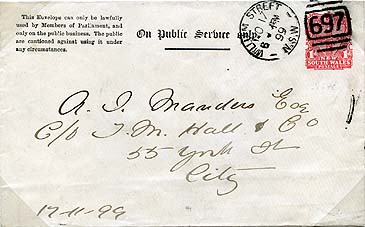 This Envelope can only be lawfully
used by Members of Parliament, and
only on the public business. The public
are cautioned against using it under
any circumstances.
On Public Service
WILLIAM STREET
N.S.W
8
NO 17
99
697
NEW
SOUTH WALES
POSTAGE
A. J. Manders Esq
C/o J. M. Hall & Co
55 York St
City
17-11-99